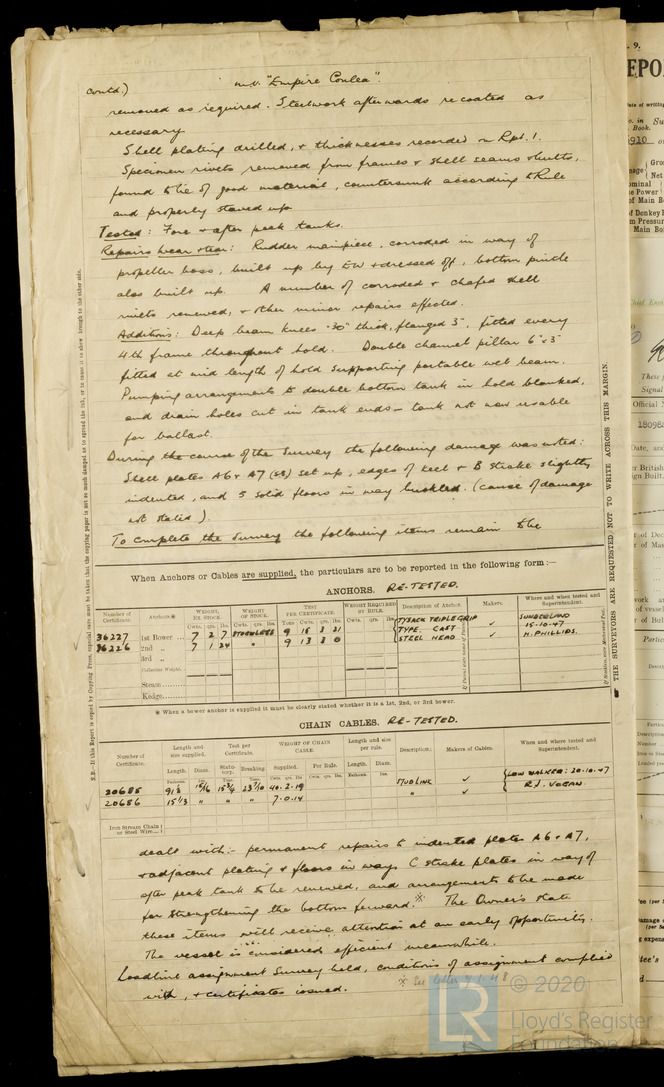 contd.)
m.v. "Empire Conlea".
removed as required. Steelwork afterwards recoated as
necessary
Shell plating drilled, & thicknesses recorded on Rpt. 1.
Specimen rivets removed from frames & shell seams & butts,
found to be of good material, countersunk according to Rule
and properly staved up
Tested: Fore & after peak tanks.
Repairs Wear & tear: Rudder mainpiece, corroded in way of
propeller boss, built up by EW & dressed off, bottom pintle
also built up. A number of corroded & chafed shell
rivets renewed, & other minor repairs effected.
Additions: Deep beam knees .30" thick, flanged 3", fitted every
4th frame throughout hold. Double channel pillar 6" x 3"
fitted at mid length of hold supporting portable web beam.
Pumping arrangements to double bottom tank in hold blanked,
and drain holes cut in tank ends - tank not now usable
for ballast.
During the course of the Survey the following damage was noted:
Shell plates A6 & A7 set up, edges of keel & B strake slightly
indented, and 5 solid floors in way buckled. (cause of damage
not stated).
To complete the Survey the following items remain to be
When Anchors or Cables are supplied, the particulars are to be reported in the following form:—
ANCHORS. RE-TESTED.
Number of Certificate. Anchors* WEIGHT, EX STOCK. WEIGHT OF STOCK. TEST PER CERTIFICATE. WEIGHT REQUIRED BY RULE. Description of Anchor. Makers. Where and when tested and Superintendent.
Cwts. qrs. lbs. Cwts. qrs. lbs. Tons Cwts. qrs. lbs. Cwts. qrs. lbs.
36227 1st Bower ... 7 2 7 STOCKLESS 9 15 3 21 TYSACK TRIPLE GRIP TYPE. CAST STEEL HEAD ✓ SUNDERLAND
36226 2nd „ 7 1 24 " 9 13 3 0 ✓ 15-10-47 H. PHILLIPS.
3rd „
Collective Weight.
Steam.........
Kedge.........
* When a bower anchor is supplied it must be clearly stated whether it is a 1st, 2nd, or 3rd bower.
CHAIN CABLES. RE-TESTED.
Number of Certificate. Length and size supplied. Test per Certificate. WEIGHT OF CHAIN CABLE. Length and size per rule. Description. Makers of Cables. When and where tested and Superintendent.
Length. Diam. Statutory. Breaking. Supplied. Per Rule. Length. Diam.
20685 15/16 40-2-19 STUD LINK ✓ LOW WALKER: 20-10-47
20686 " " " 7-0-14 " ✓ R.J. VOGAN.
Iron Stream Chain or Steel Wire...
dealt with:- permanent repairs to indented plates A6 & A7,
& adjacent plating & floors in way, C strake plates in way of
after peak tank to be renewed, and arrangements to be made
for strengthening the bottom forward.* The Owners state
these items will receive attention at an early opportunity.
The vessel is considered efficient meanwhile.
Loadline assignment Survey held, conditions of assignment complied
with, & certificates issued.
* See letter
N.B.—If this Report is copied by Copying Press, especial care must be taken that the copying paper is not so much damped as to spread the ink, or to cause it to show through to the other side.
THE SURVEYORS ARE REQUESTED NOT TO WRITE ACROSS THIS MARGIN.
LR © 2020
Lloyd's Register
Foundation